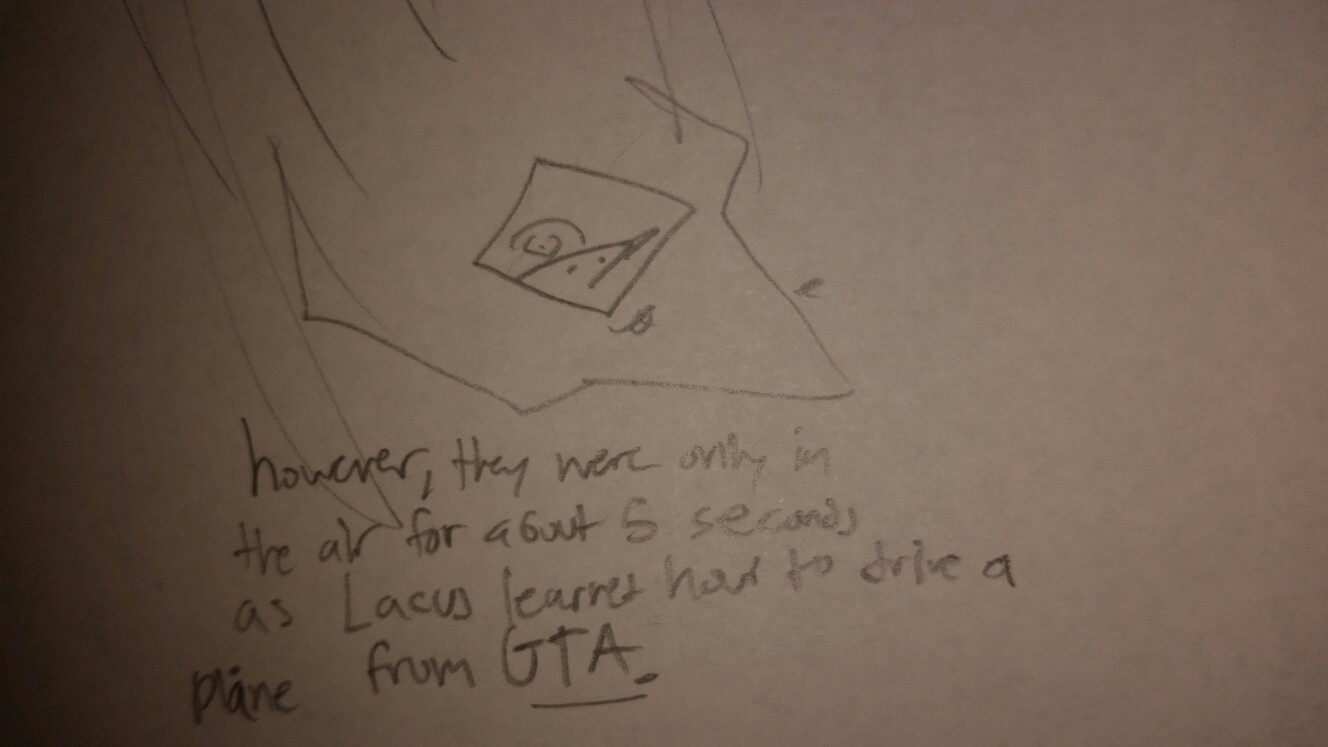 however, they were only in
the air for about 5 seconds
as Lacus learnet how to drive a
plane from GTA.